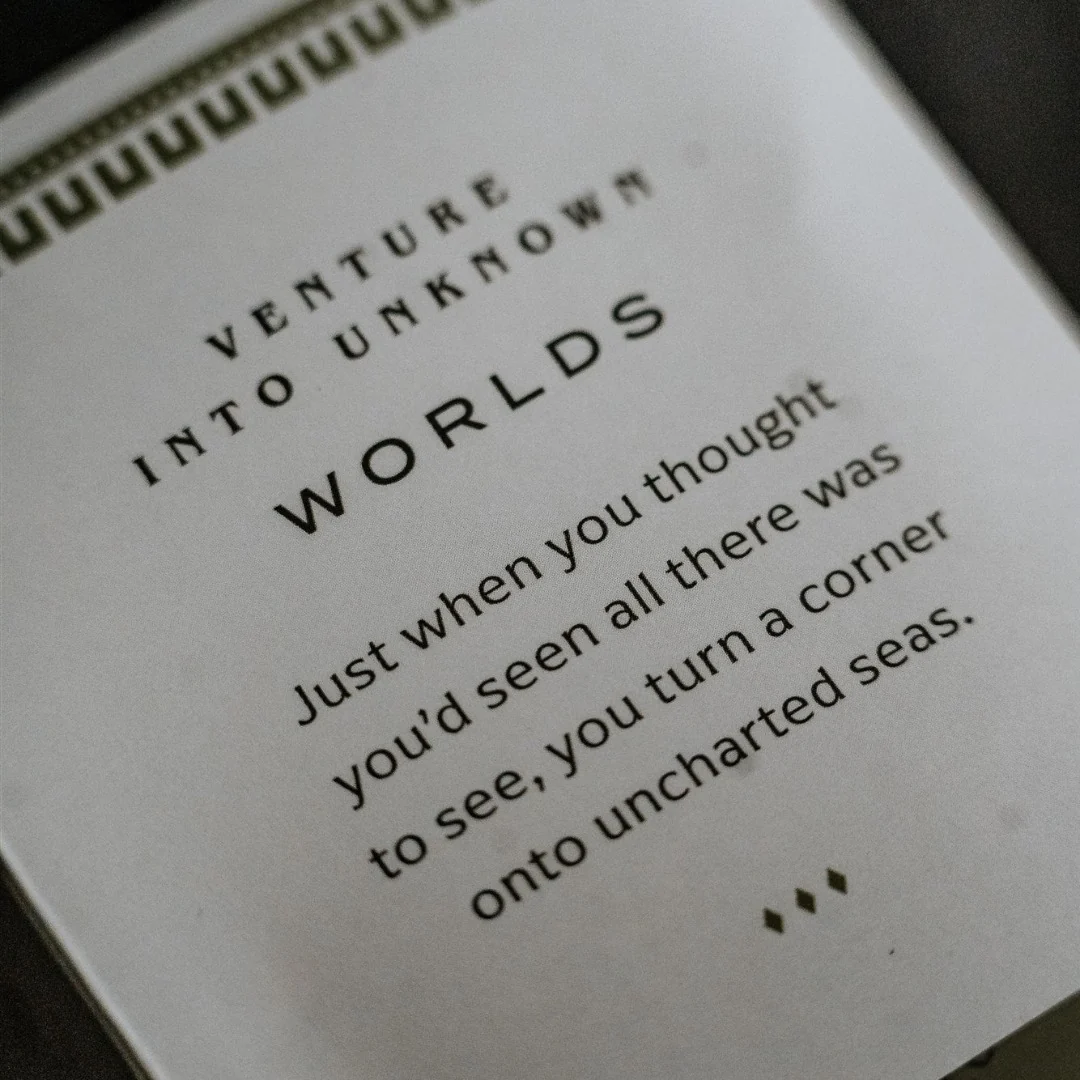 VENTURE
INTO UNKNOWN
WORLDS
Just when you thought
you’d seen all there was
to see, you turn a corner
onto uncharted seas.